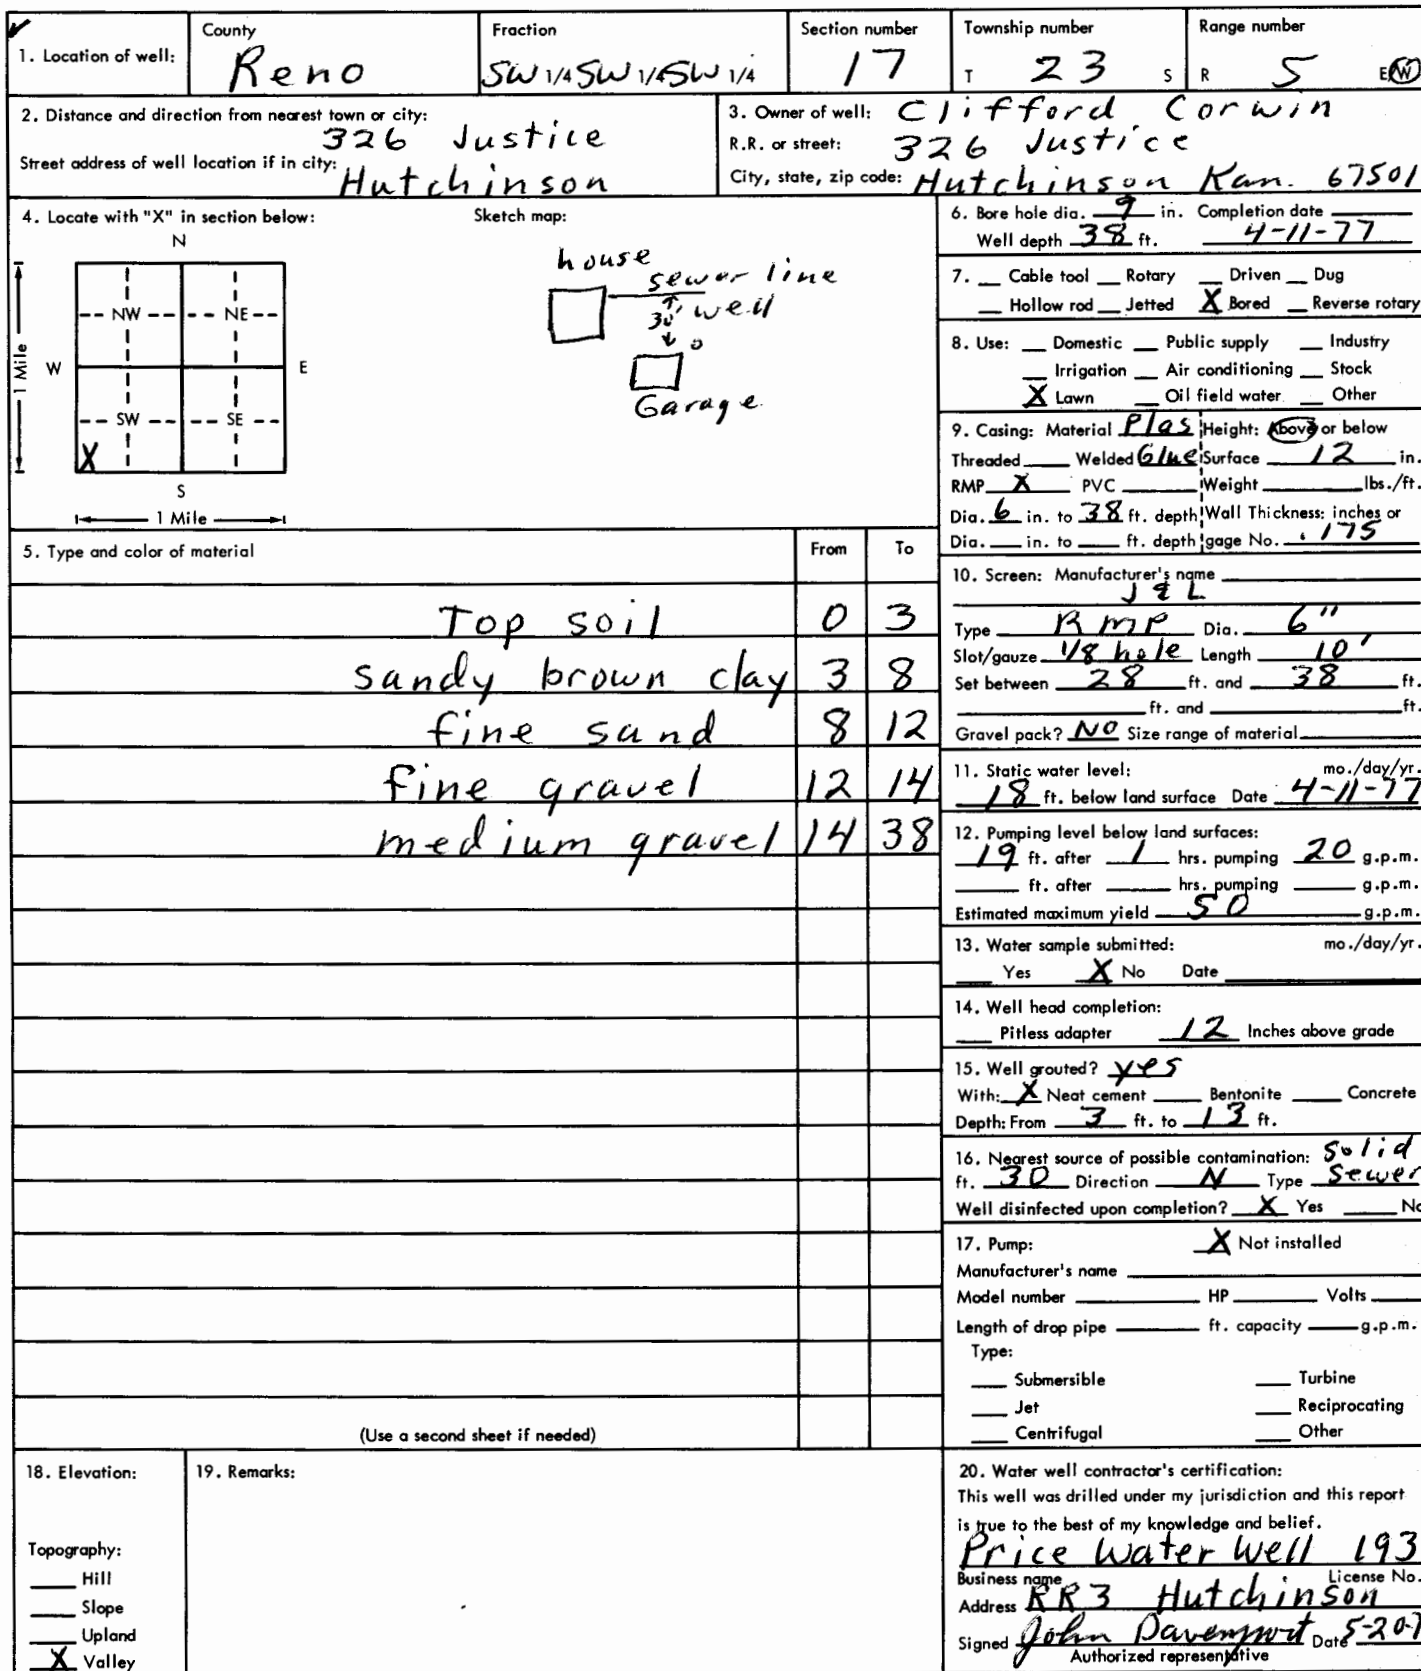 1. Location of well:
County
Reno
Fraction
SW 1/4 SW 1/4 SW 1/4
Section number
17
Township number
T 23 S
Range number
R 5 E W
2. Distance and direction from nearest town or city:
326 Justice
Street address of well location if in city:
Hutchinson
3. Owner of well: Clifford Corwin
R.R. or street: 326 Justice
City, state, zip code: Hutchinson Kan. 67501
4. Locate with "X" in section below:
N
NW NE
W E
SW SE
X
S
1 Mile
1 Mile
Sketch map:
house
sewer line
30' well
Garage
5. Type and color of material From To
Top soil 0 3
sandy brown clay 3 8
fine sand 8 12
fine gravel 12 14
medium gravel 14 38
(Use a second sheet if needed)
6. Bore hole dia. 9 in. Completion date
Well depth 38 ft. 4-11-77
7. Cable tool Rotary Driven Dug
Hollow rod Jetted X Bored Reverse rotary
8. Use: Domestic Public supply Industry
Irrigation Air conditioning Stock
X Lawn Oil field water Other
9. Casing: Material Plas Height: Above or below
Threaded Welded Glue Surface 12 in.
RMP X PVC Weight lbs./ft.
Dia. 6 in. to 38 ft. depth Wall Thickness: inches or
Dia. in. to ft. depth gage No. .175
10. Screen: Manufacturer's name
J & L
Type RMP Dia. 6"
Slot/gauze 1/8 hole Length 10'
Set between 28 ft. and 38 ft.
ft. and ft.
Gravel pack? NO Size range of material
11. Static water level: mo./day/yr.
18 ft. below land surface Date 4-11-77
12. Pumping level below land surfaces:
19 ft. after 1 hrs. pumping 20 g.p.m.
ft. after hrs. pumping g.p.m.
Estimated maximum yield 50 g.p.m.
13. Water sample submitted: mo./day/yr.
Yes X No Date
14. Well head completion:
Pitless adapter 12 Inches above grade
15. Well grouted? yes
With: X Neat cement Bentonite Concrete
Depth: From 3 ft. to 13 ft.
16. Nearest source of possible contamination: Solid
ft. 30 Direction N Type Sewer
Well disinfected upon completion? X Yes No
17. Pump: X Not installed
Manufacturer's name
Model number HP Volts
Length of drop pipe ft. capacity g.p.m.
Type:
Submersible Turbine
Jet Reciprocating
Centrifugal Other
18. Elevation:
Topography:
Hill
Slope
Upland
X Valley
19. Remarks:
20. Water well contractor's certification:
This well was drilled under my jurisdiction and this report
is true to the best of my knowledge and belief.
Price Water Well 193
Business name License No.
Address RR3 Hutchinson
Signed John Davenport Date 5-20-7
Authorized representative